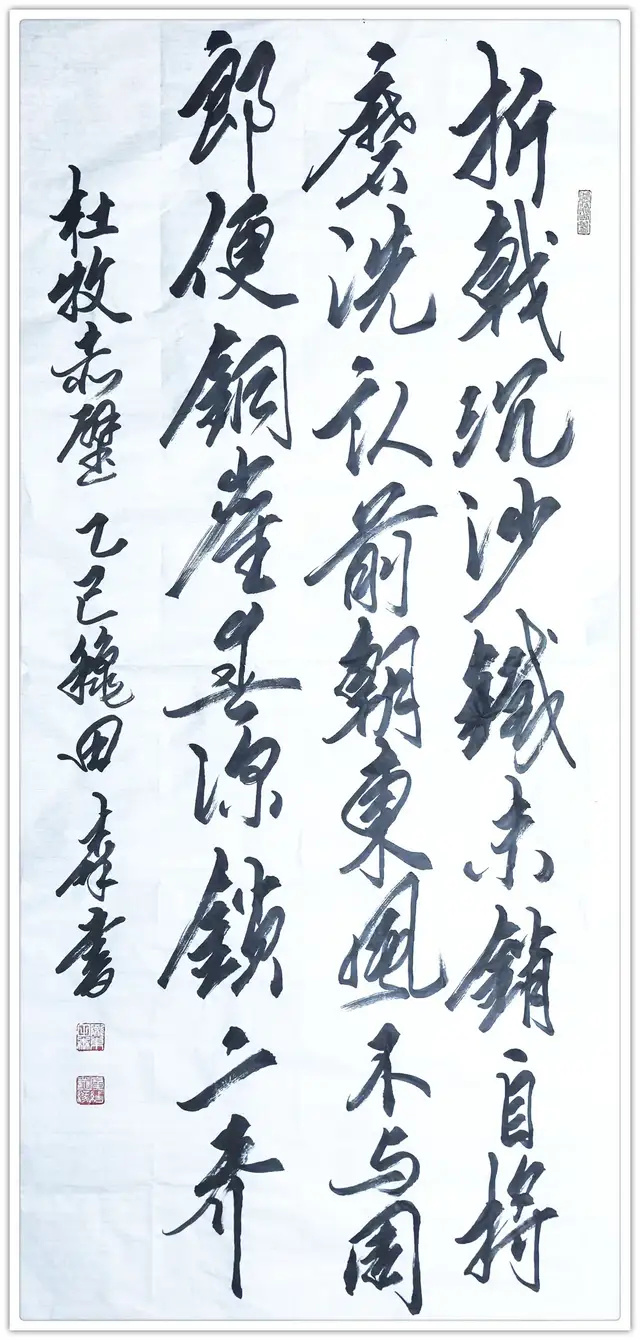 折戟沉沙鐵未銷自將
磨洗认前朝東風不与周
郎便銅雀春深鎖二乔
杜牧赤壁 乙巳龝田森書